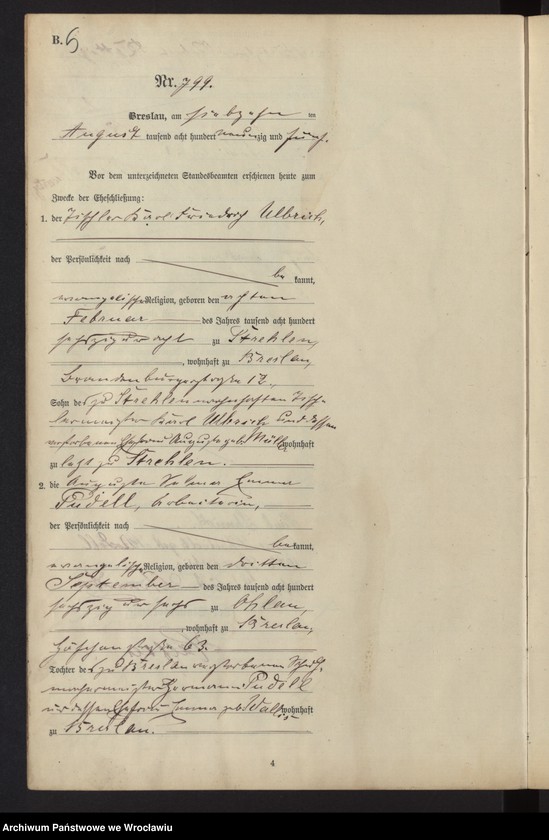 B. 6
Nr. 799.
Breslau, am siebzehn ten
August tausend acht hundert neunzig und fünf.
Vor dem unterzeichneten Standesbeamten erschienen heute zum
Zwecke der Eheschließung:
1. der Tischler Karl Friedrich Ulbrich,
der Persönlichkeit nach
be kannt,
evangelischer Religion, geboren den achten
Februar des Jahres tausend acht hundert
sechszig und acht zu Strehlen,
, wohnhaft zu Breslau,
Brandenburgerstraße 12.,
Sohn des zu Strehlen wohnhaften Tisch-
lermeister Karl Ulbrich und dessen
verstorbenen Ehefrau Auguste geb. wohnhaft
zu letzt zu Strehlen.
2. die Auguste Selma Emma
Pudell, Arbeiterin,
der Persönlichkeit nach
be kannt,
evangelischer Religion, geboren den dritten
September des Jahres tausend acht hundert
sechszig und sechs zu Ohlau,
, wohnhaft zu Breslau,
Höfchenstraße 63.
Tochter des zu Breslau verstorbenen Schuh-
machermeister Hermann Pudell
und dessen Ehefrau Emma geb. wohnhaft
zu Breslau.
4
Archiwum Państwowe we Wrocławiu